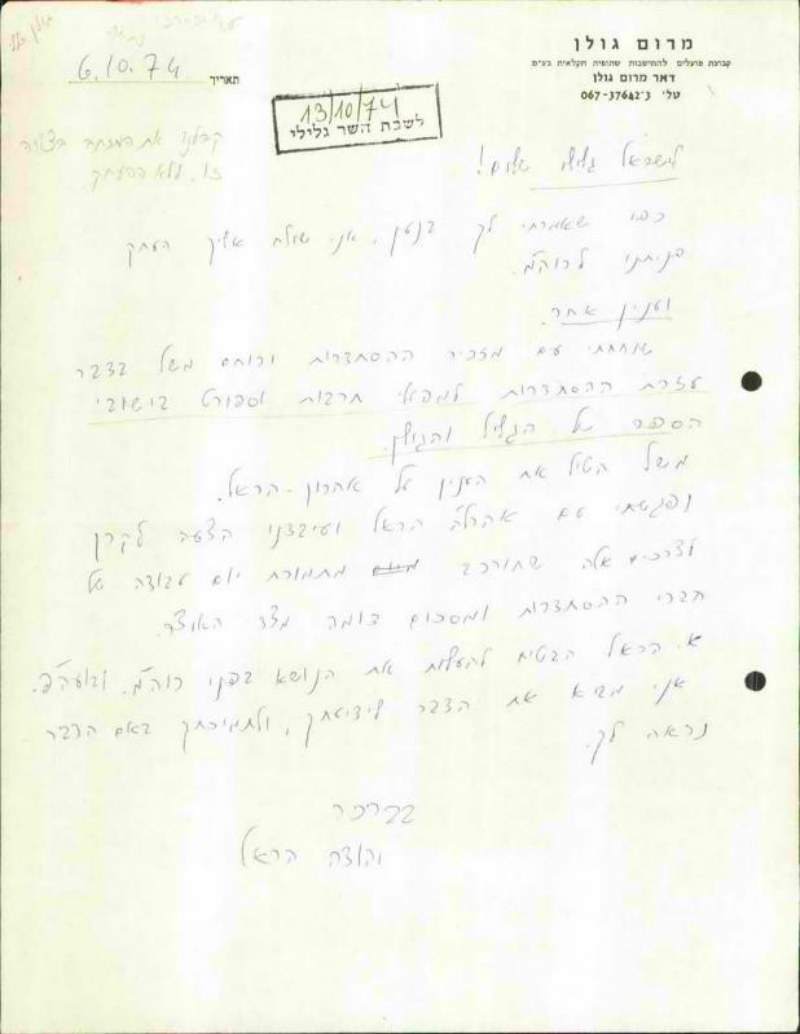 מרום גולן
קבוצת פועלים להתישבות שתופית חקלאית בע״מ
דאר מרום גולן
טל׳ 067-37642־3
תאריך 6.10.74
13/10/74
לשכת השר גלילי
קבלנו את המכתב בצורה
זו, ללא העתק.
לישראל גלילי שלום!
כפי שאמרתי לך בנטן, אני שולח אליך העתק
פניתנו לרוה״מ.
וענין אחר.
שוחחתי עם מזכיר ההסתדרות ירוחם משל בדבר
עזרת ההסתדרות למפאי תרבות וספורט בישובי
הספר של הגליל והגולן.
משל הטיל את הענין על אהרון הראל.
נפגשתי עם אהרל׳ה הראל ועיבדנו הצעה לקרן
לצרכים אלה שתורכב מתמורת יום עבודה של
חברי ההסתדרות ומסכום דומה מצד האוצר.
א. הראל הבטיח להעלות את הנושא בפני רוה״מ. ובועה״פ.
אני מביא את הדבר לידיעתך, ולתמיכתך באם הדבר
נראה לך.
בברכה
יהודה הראל